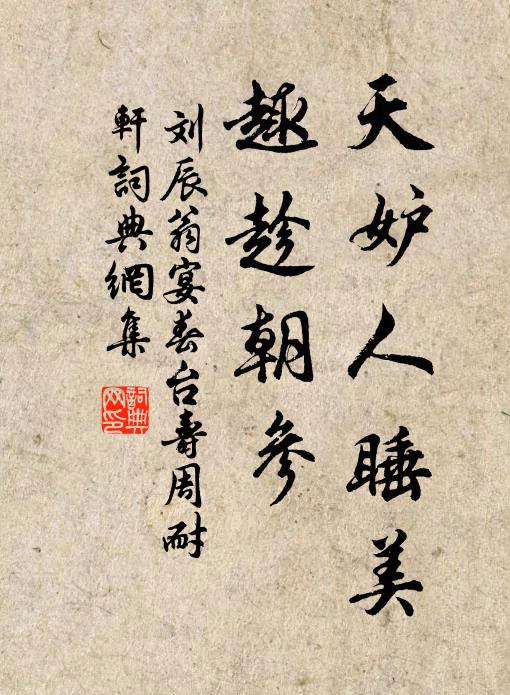 天妒人睡美
趣趁朝參
刘辰翁宴春台壽周耐
軒詞典網集
詞典
网印